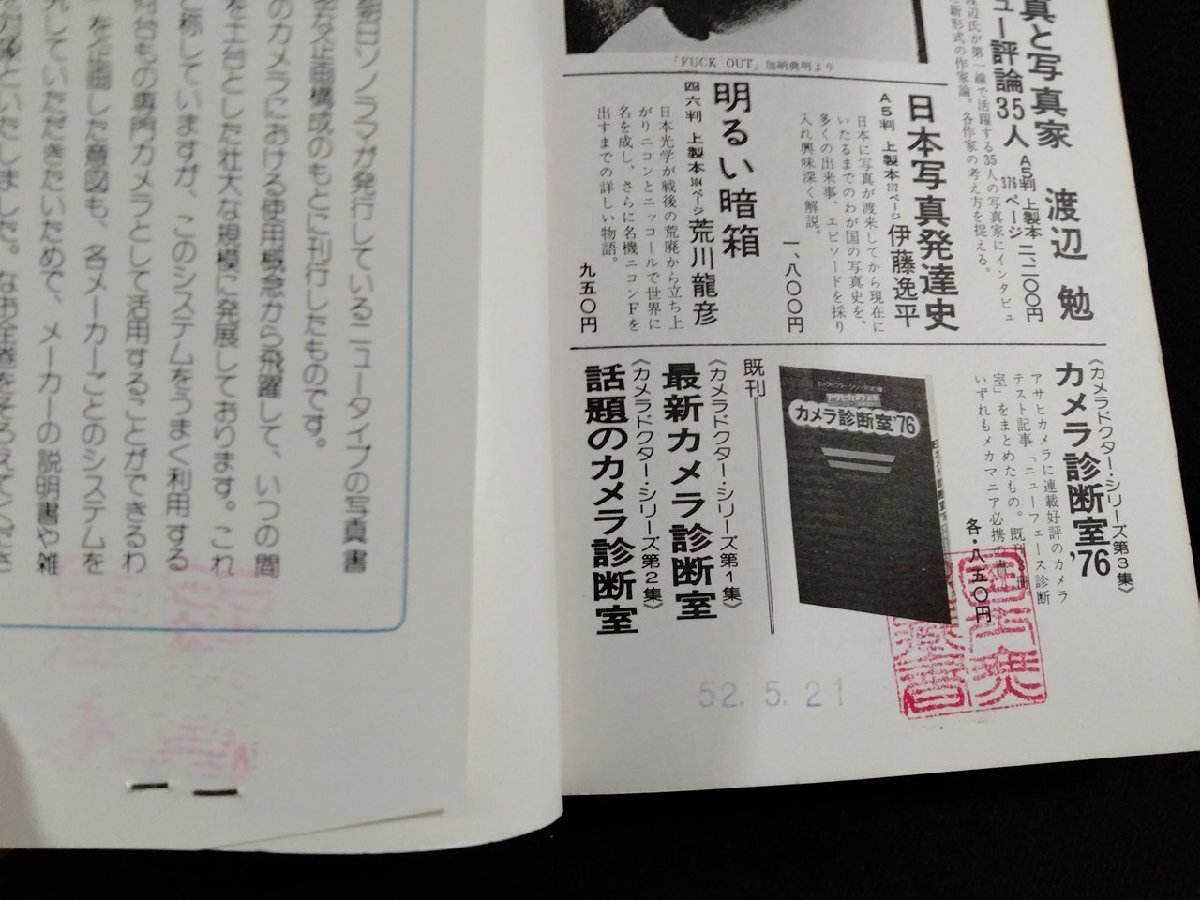 「FUCK OUT」加納典明より
真と写真家 渡辺 勉
ュー評論35人
A5判 上製本
376ページ
二、二〇〇円
渡辺氏が第一線で活躍する35人の写真家にインタビュ
新形式の作家論。各作家の考え方を捉える。
日本写真発達史
A5判 上製本272ページ 伊藤逸平
日本に写真が渡来してから現在に
いたるまでのわが国の写真史を、
多くの出来事、エピソードを採り
入れ興味深く解説。
一、八〇〇円
明るい暗箱
四六判 上製本304ページ 荒川龍彦
日本光学が戦後の荒廃から立ち上
がりニコンとニッコールで世界に
名を成し、さらに名機ニコンFを
出すまでの詳しい物語。
九五〇円
〈カメラドクター・シリーズ第3集〉
カメラ診断室'76
アサヒカメラに連載好評のカメラ
テスト記事「ニューフェース診断
室」をまとめたもの。既刊3冊。
いずれもメカマニア必携の
各・八五〇円
カメラ診断室'76
既刊
〈カメラドクター・シリーズ第1集〉
最新カメラ診断室
〈カメラドクター・シリーズ第2集〉
話題のカメラ診断室
52. 5. 21
朝日ソノラマが発行しているニュータイプの写真書
な企画構成のもとに刊行したものです。
のカメラにおける使用概念から飛躍して、いつの間
を土台とした壮大な規模に発展しております。これ
と称していますが、このシステムをうまく利用する
何台もの専門カメラとして活用することができるわ
を企画した意図も、各メーカーごとのシステムを
究していただきたいためで、メーカーの説明書や雑
対象といたしました。なお全巻をそろえてくださ